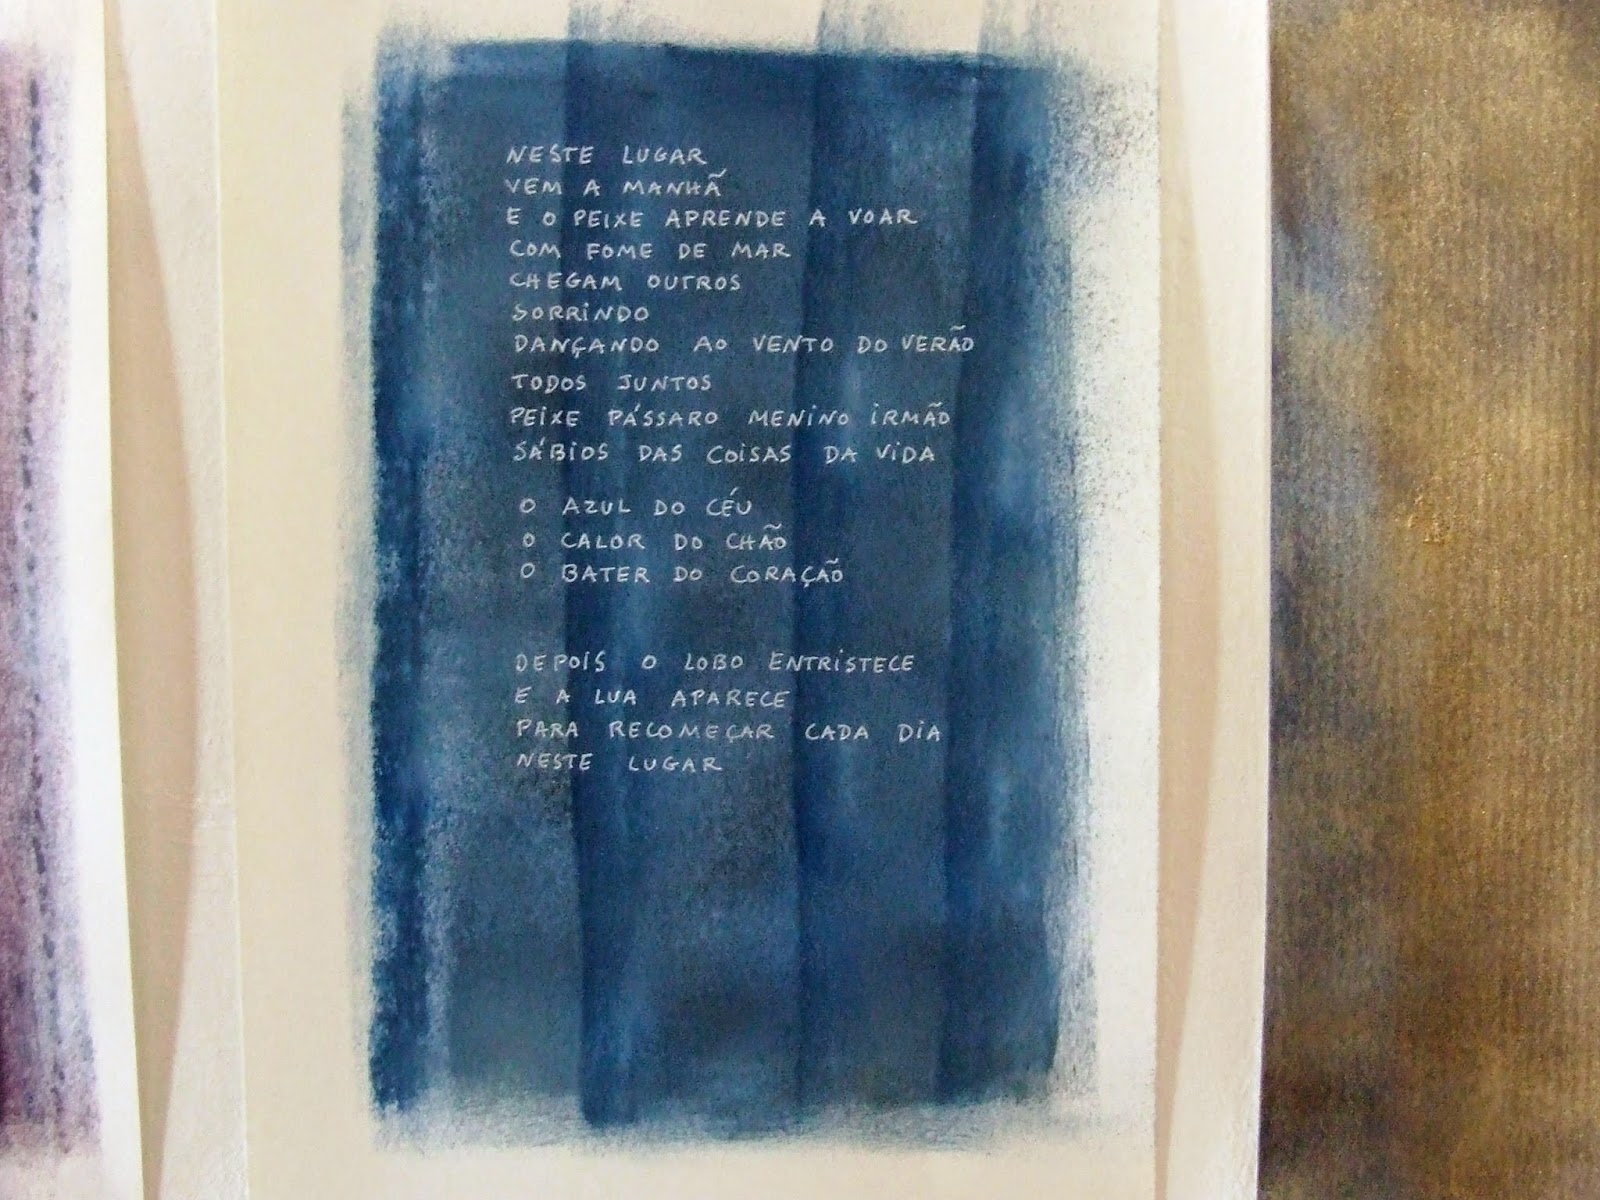 NESTE LUGAR
VEM A MANHÃ
E O PEIXE APRENDE A VOAR
COM FOME DE MAR
CHEGAM OUTROS
SORRINDO
DANÇANDO AO VENTO DO VERÃO
TODOS JUNTOS
PEIXE PÁSSARO MENINO IRMÃO
SÁBIOS DAS COISAS DA VIDA
O AZUL DO CÉU
O CALOR DO CHÃO
O BATER DO CORAÇÃO
DEPOIS O LOBO ENTRISTECE
E A LUA APARECE
PARA RECOMEÇAR CADA DIA
NESTE LUGAR